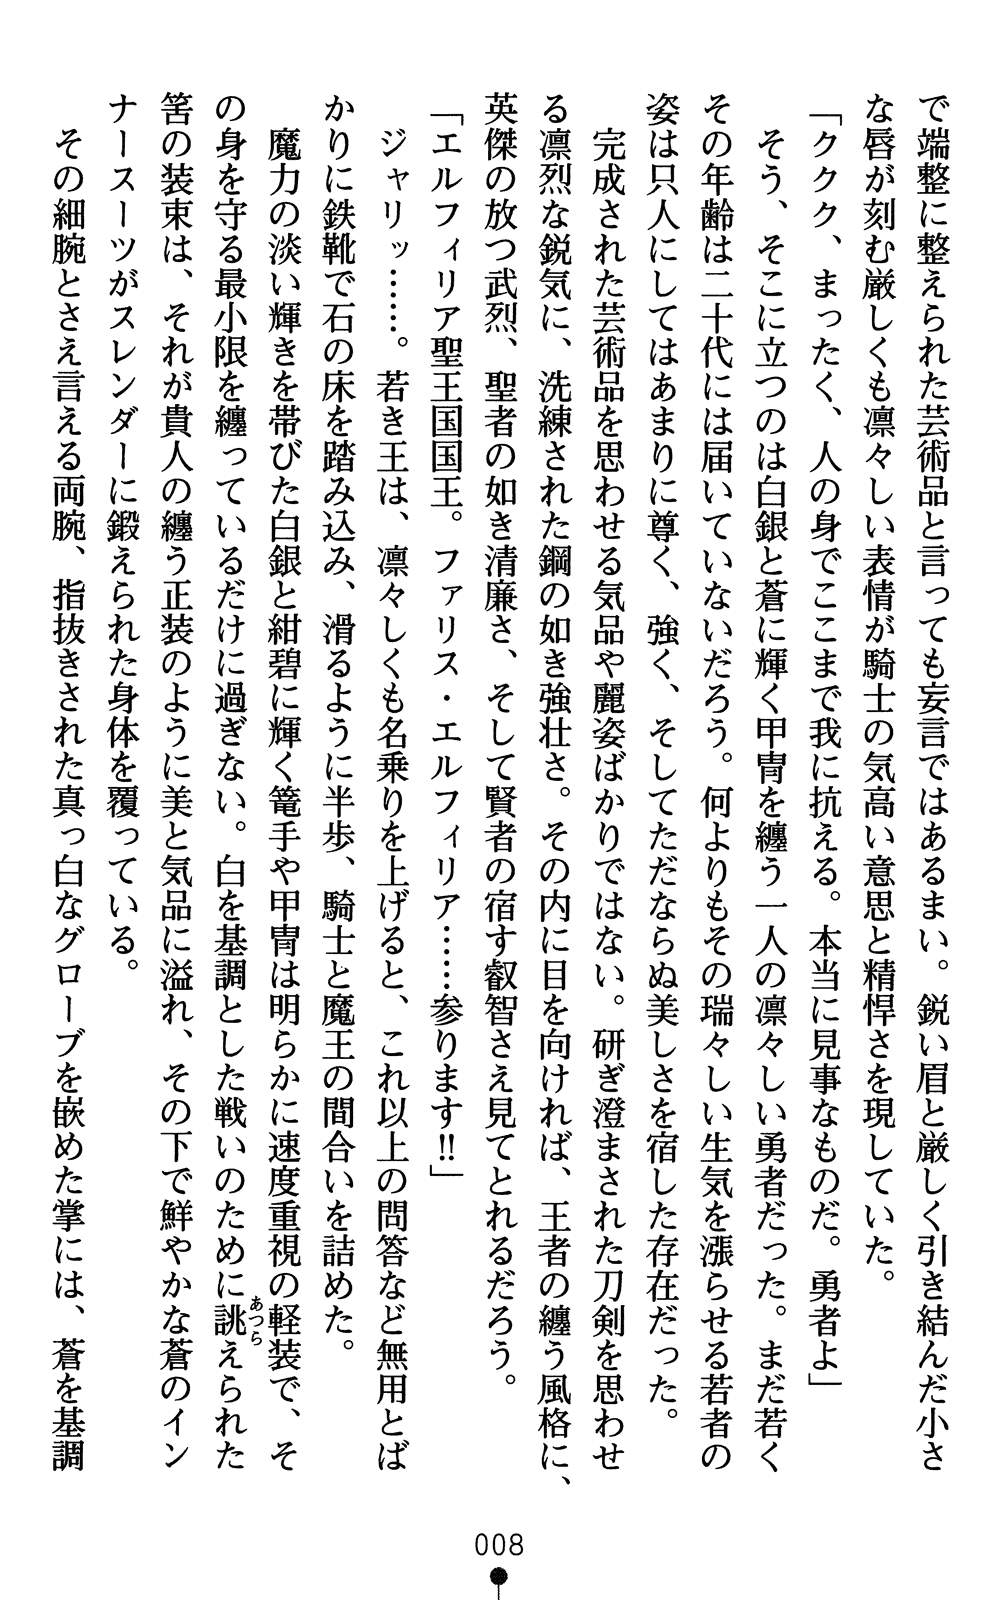 で端整に整えられた芸術品と言っても妄言ではあるまい。鋭い眉と厳しく引き結んだ小さ
な唇が刻む厳しくも凛々しい表情が騎士の気高い意思と精悍さを現していた。
「ククク、まったく、人の身でここまで我に抗える。本当に見事なものだ。勇者よ」
そう、そこに立つのは白銀と蒼に輝く甲冑を纏う一人の凛々しい勇者だった。まだ若く
その年齢は二十代には届いていないだろう。何よりもその瑞々しい生気を漲らせる若者の
姿は只人にしてはあまりに尊く、強く、そしてただならぬ美しさを宿した存在だった。
完成された芸術品を思わせる気品や麗姿ばかりではない。研ぎ澄まされた刀剣を思わせ
る凛烈な鋭気に、洗練された鋼の如き強壮さ。その内に目を向ければ、王者の纏う風格に、
英傑の放つ武烈、聖者の如き清廉さ、そして賢者の宿す叡智さえ見てとれるだろう。
「エルフィリア聖王国国王。ファリス・エルフィリア……参ります‼」
ジャリッ……。若き王は、凛々しくも名乗りを上げると、これ以上の問答など無用とば
かりに鉄靴で石の床を踏み込み、滑るように半歩、騎士と魔王の間合いを詰めた。
魔力の淡い輝きを帯びた白銀と紺碧に輝く篭手や甲冑は明らかに速度重視の軽装で、そ
の身を守る最小限を纏っているだけに過ぎない。白を基調とした戦いのために誂えられた
あつら
筈の装束は、それが貴人の纏う正装のように美と気品に溢れ、その下で鮮やかな蒼のイン
ナースーツがスレンダーに鍛えられた身体を覆っている。
その細腕とさえ言える両腕、指抜きされた真っ白なグローブを嵌めた掌には、蒼を基調
008